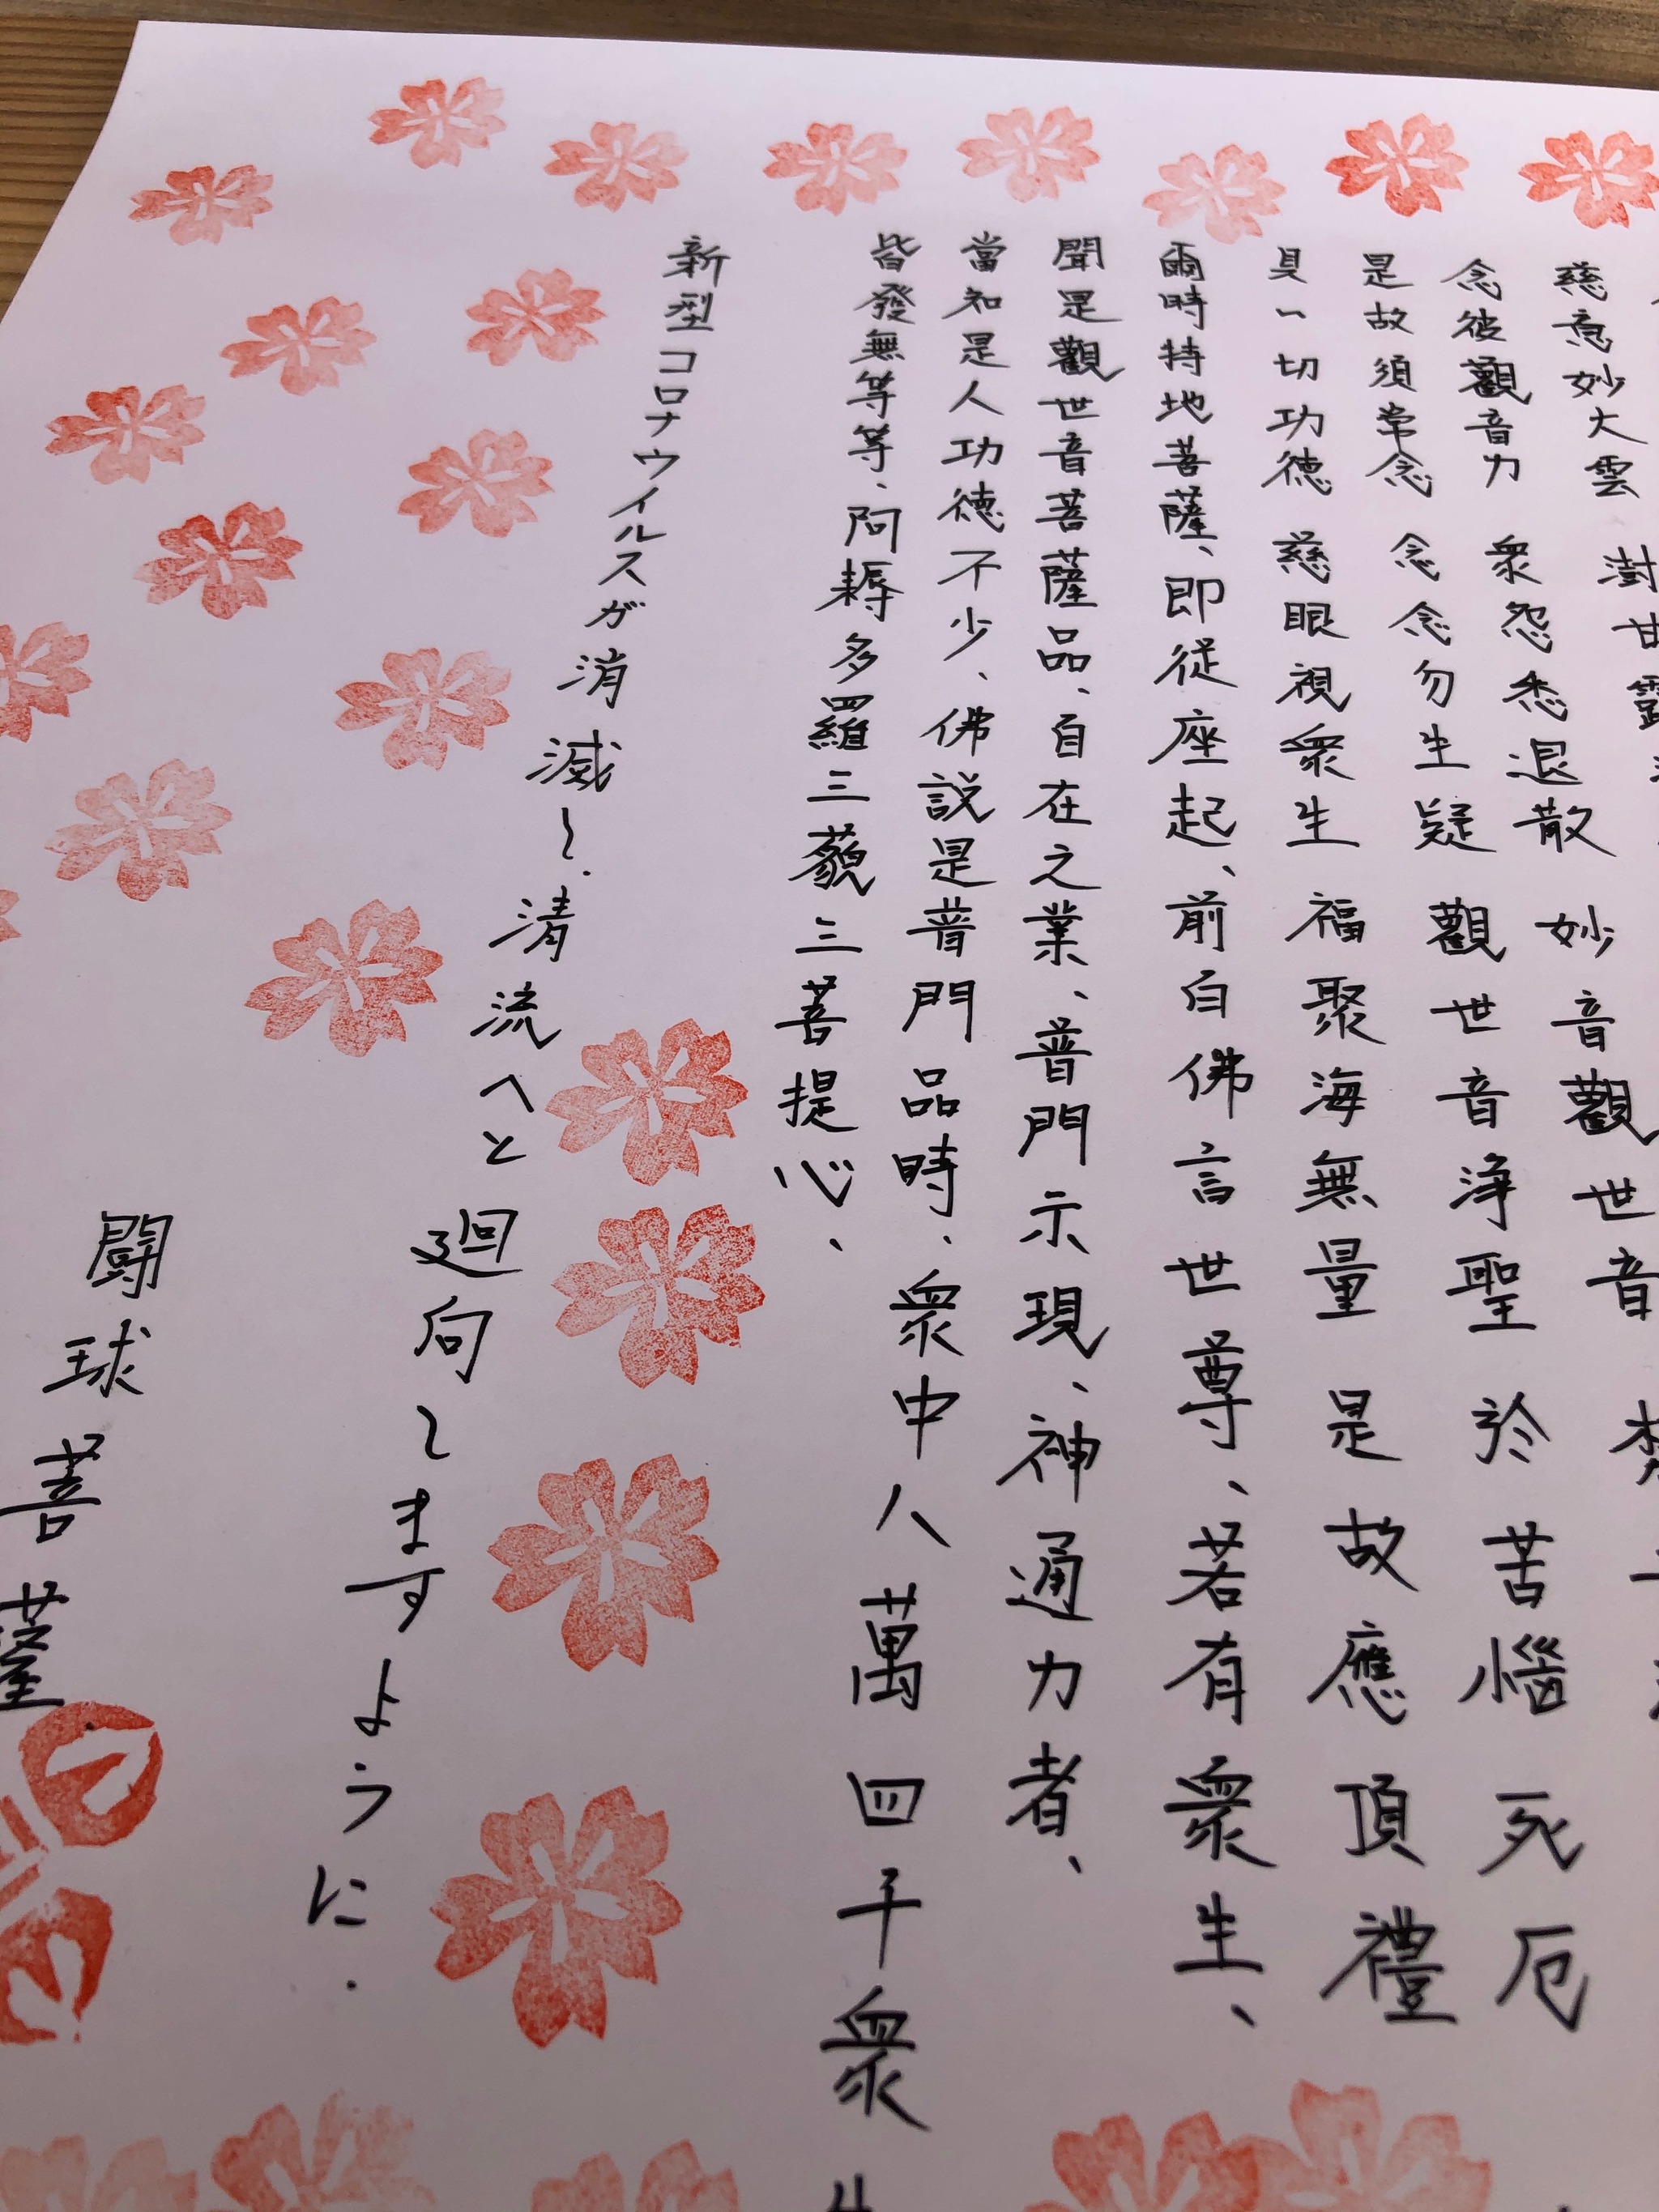 慈意妙大雲　澍甘露法
念彼觀音力　衆怨悉退散　妙音觀世音　梵
是故須常念　念念勿生疑　觀世音浄聖　於苦惱死厄
具一切功徳　慈眼視衆生　福聚海無量　是故應頂禮
爾時持地菩薩、即從座起、前白佛言世尊、若有衆生、
聞是觀世音菩薩品、自在之業、普門示現、神通力者、
當知是人功徳不少、佛説是普門品時、衆中八萬四千衆生
皆發無等等、阿耨多羅三藐三菩提心、
新型コロナウイルスが消滅し、清流へと廻向しますように.
闘球菩薩